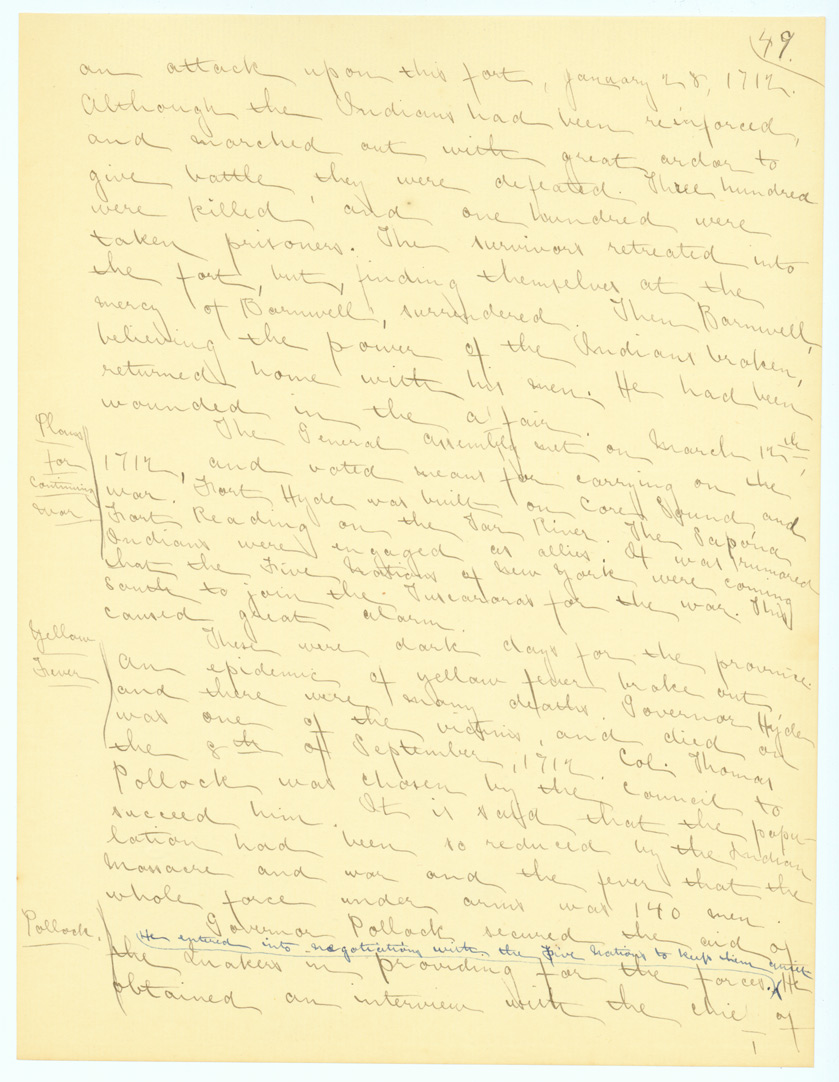 49.
an attack upon this fort, January 28, 1712.
Although the Indians had been reinforced,
and marched out with great ardor to
give battle, they were defeated. Three hundred
were killed, and one hundred were
taken prisoners. The survivors retreated into
the fort, but, finding themselves at the
mercy of Barnwell, surrendered. Then Barnwell,
believing the power of the Indians broken,
returned home with his men. He had been
wounded in the affair.
Plans
for
Continuing
war
The General Assembly met on March 12th,
1712, and voted means for carrying on the
war. Fort Hyde was built on Core Sound, and
Fort Reading on the Tar River. The Sapona
Indians were engaged as allies. It was rumored
that the Five Nations of New York were coming
South to join the Tuscaroras for the war. This
caused great alarm.
Yellow
Fever
These were dark days for the province.
An epidemic of yellow fever broke out,
and there were many deaths. Governor Hyde
was one of the victims, and died on
the 8th of September, 1712. Col. Thomas
Pollock was chosen by the Council to
succeed him. It is said that the popu-
lation had been so reduced by the Indian
Massacre and war and the fever that the
whole force under arms was 140 men.
Pollock.
Governor Pollock secured the aid of
He entered into negotiations with the Five Nations to keep them quiet
the Quakers in providing for the forces. He
obtained an interview with the chie of